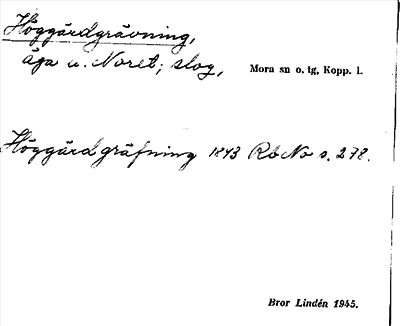 Höggärdgrävning,
äga u. Noret; slog, Mora sn o. tg, Kopp. l.
Höggärdgräfning 1843 RbNo s. 278.
Bror Lindén 1945.